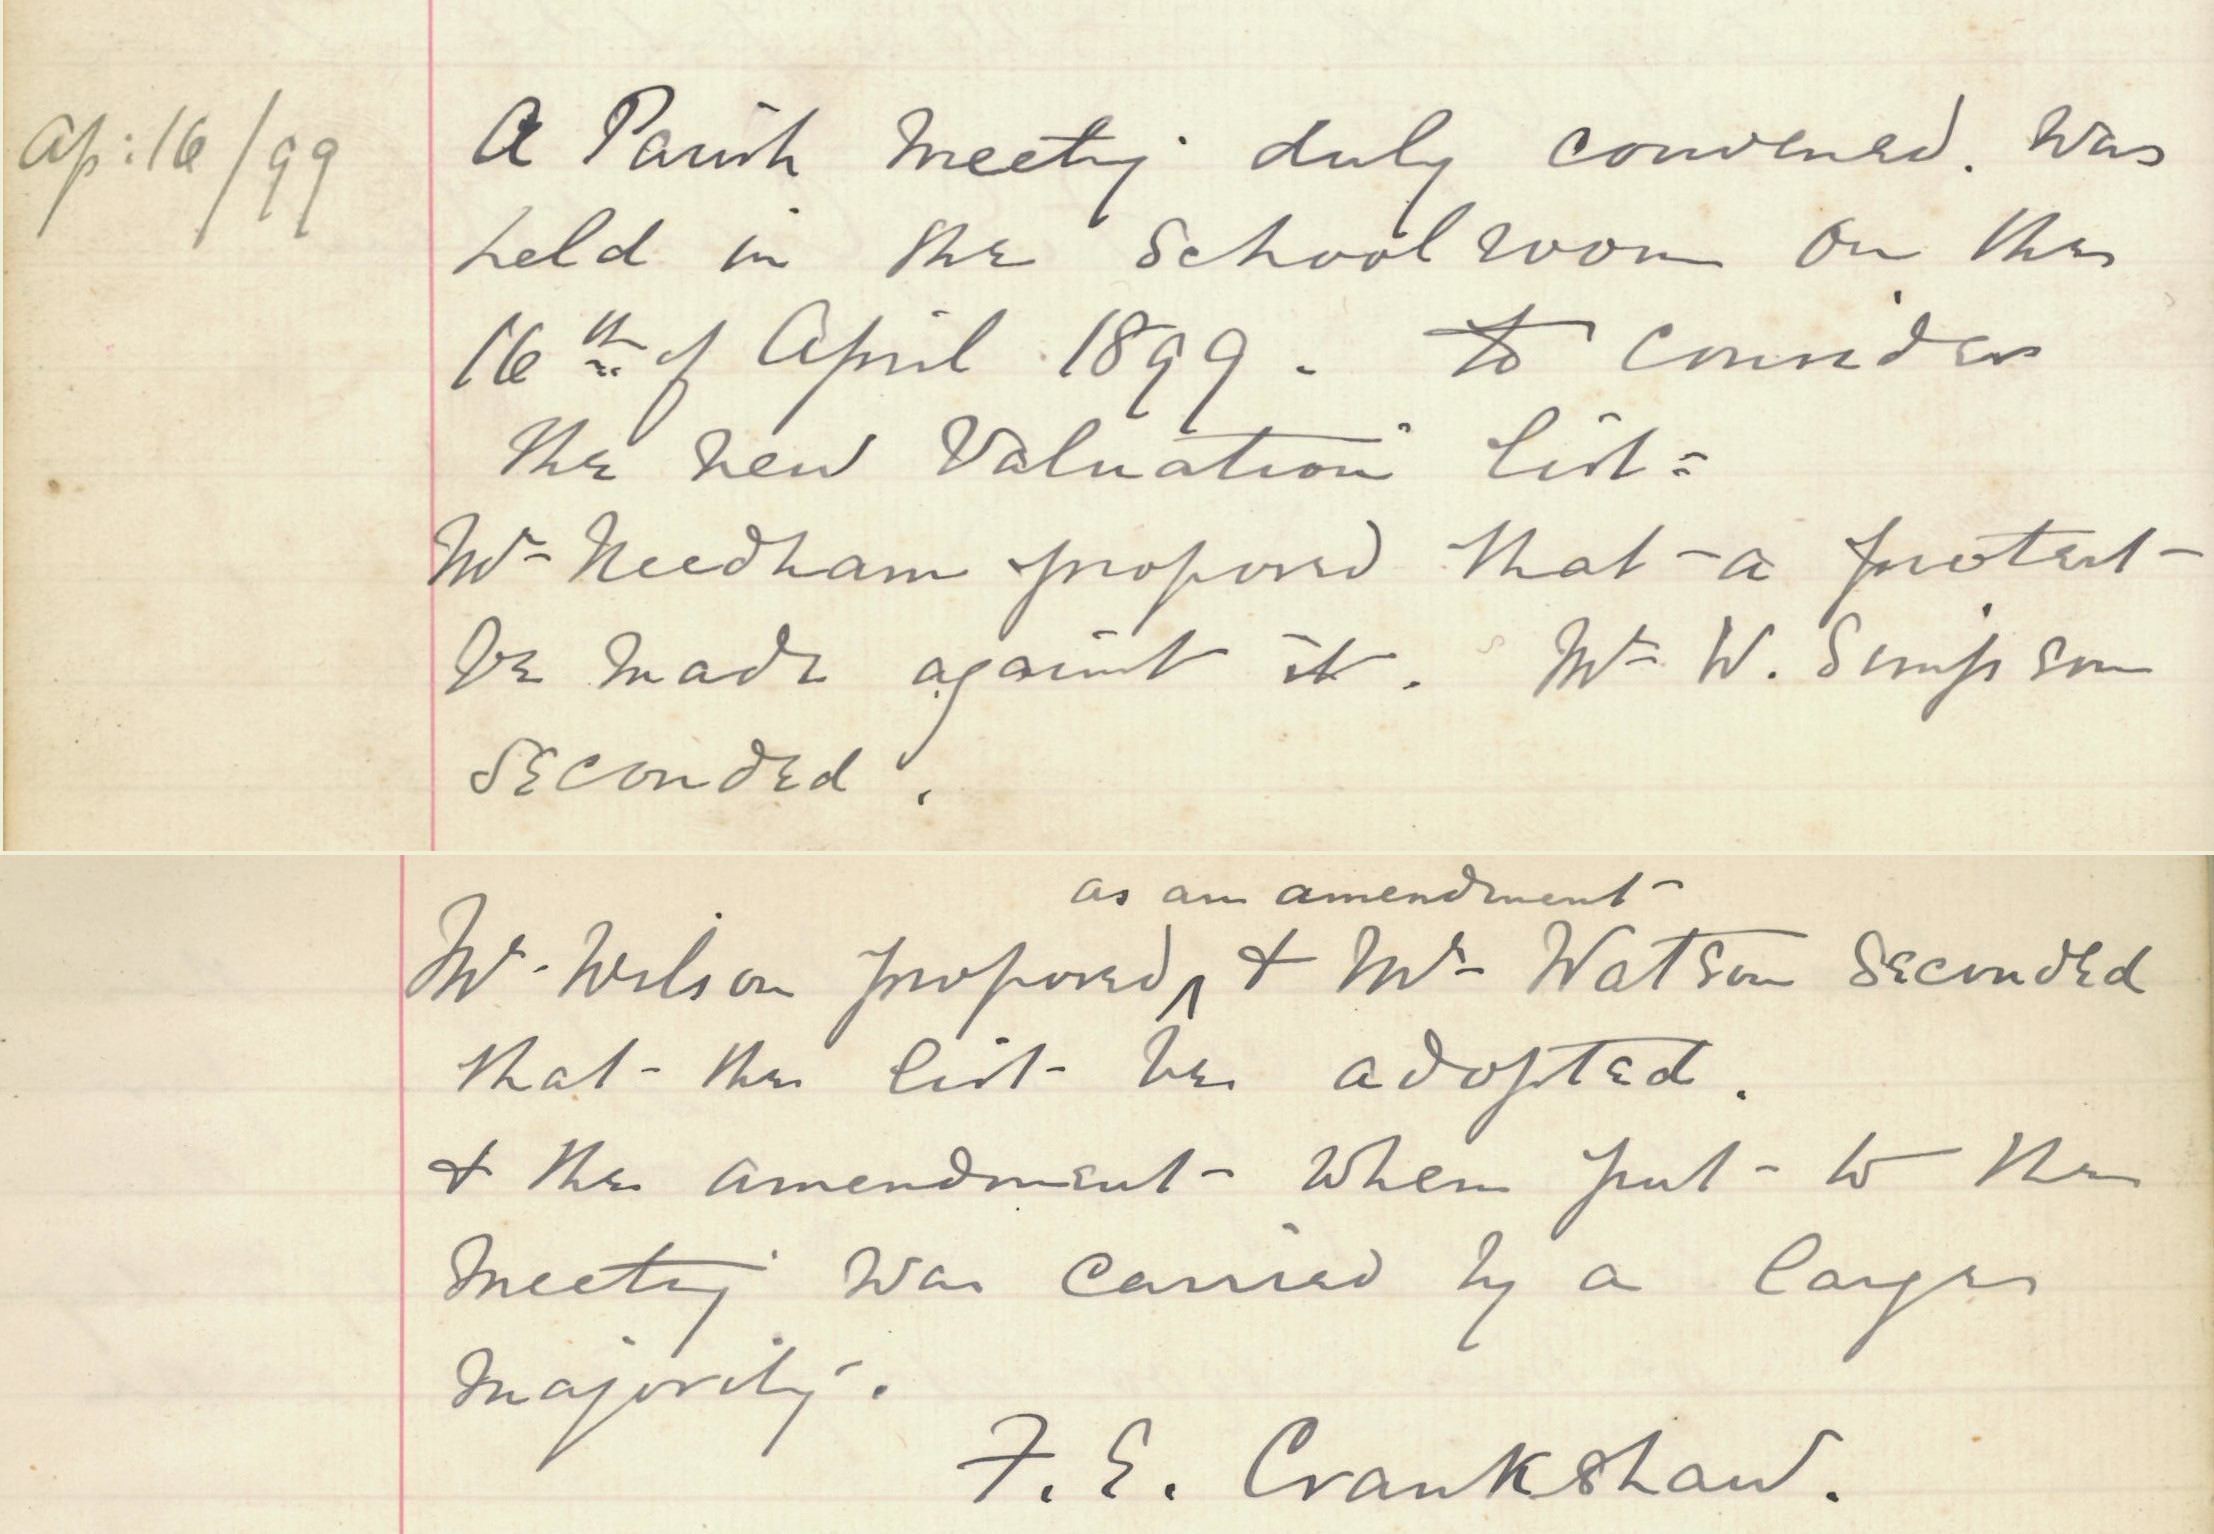 Ap: 16/99
A Parish Meeting duly convened. was
held in the Schoolroom on the
16th of April 1899. to consider
the new Valuation list=
Mr Needham proposed that a protest
be made against it. Mr W. Simpson
seconded.
as an amendment
Mr. Wilson proposed ^ & Mr Watson seconded
that the list be adopted.
& the amendment when put to the
Meeting was carried by a large
Majority.
F. E. Crankshaw.